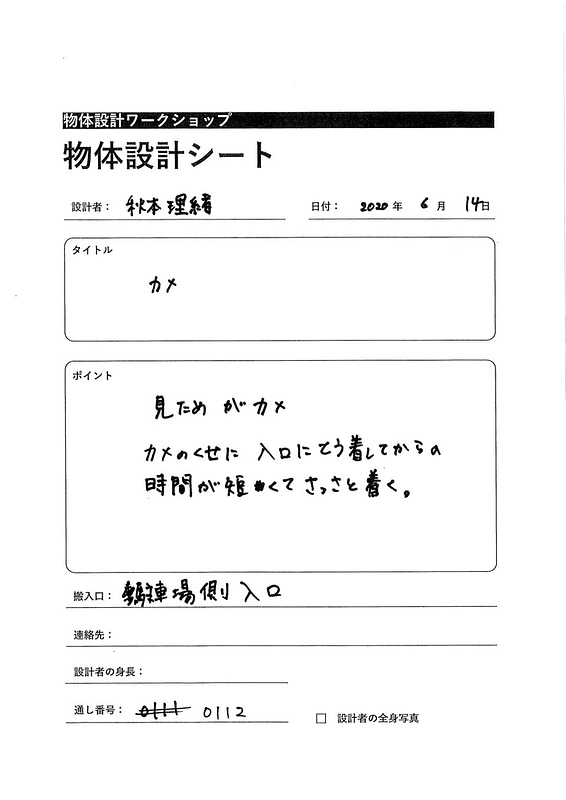 物体設計ワークショップ
物体設計シート
設計者： 秋本理緒
日付： 2020 年 6 月 14日
タイトル
カメ
ポイント
見ためがカメ
カメのくせに 入口にとう着してからの
時間が短くて さっさと着く。
搬入口： 駐車場側入口
連絡先：
設計者の身長：
通し番号： 0111 0112
□ 設計者の全身写真